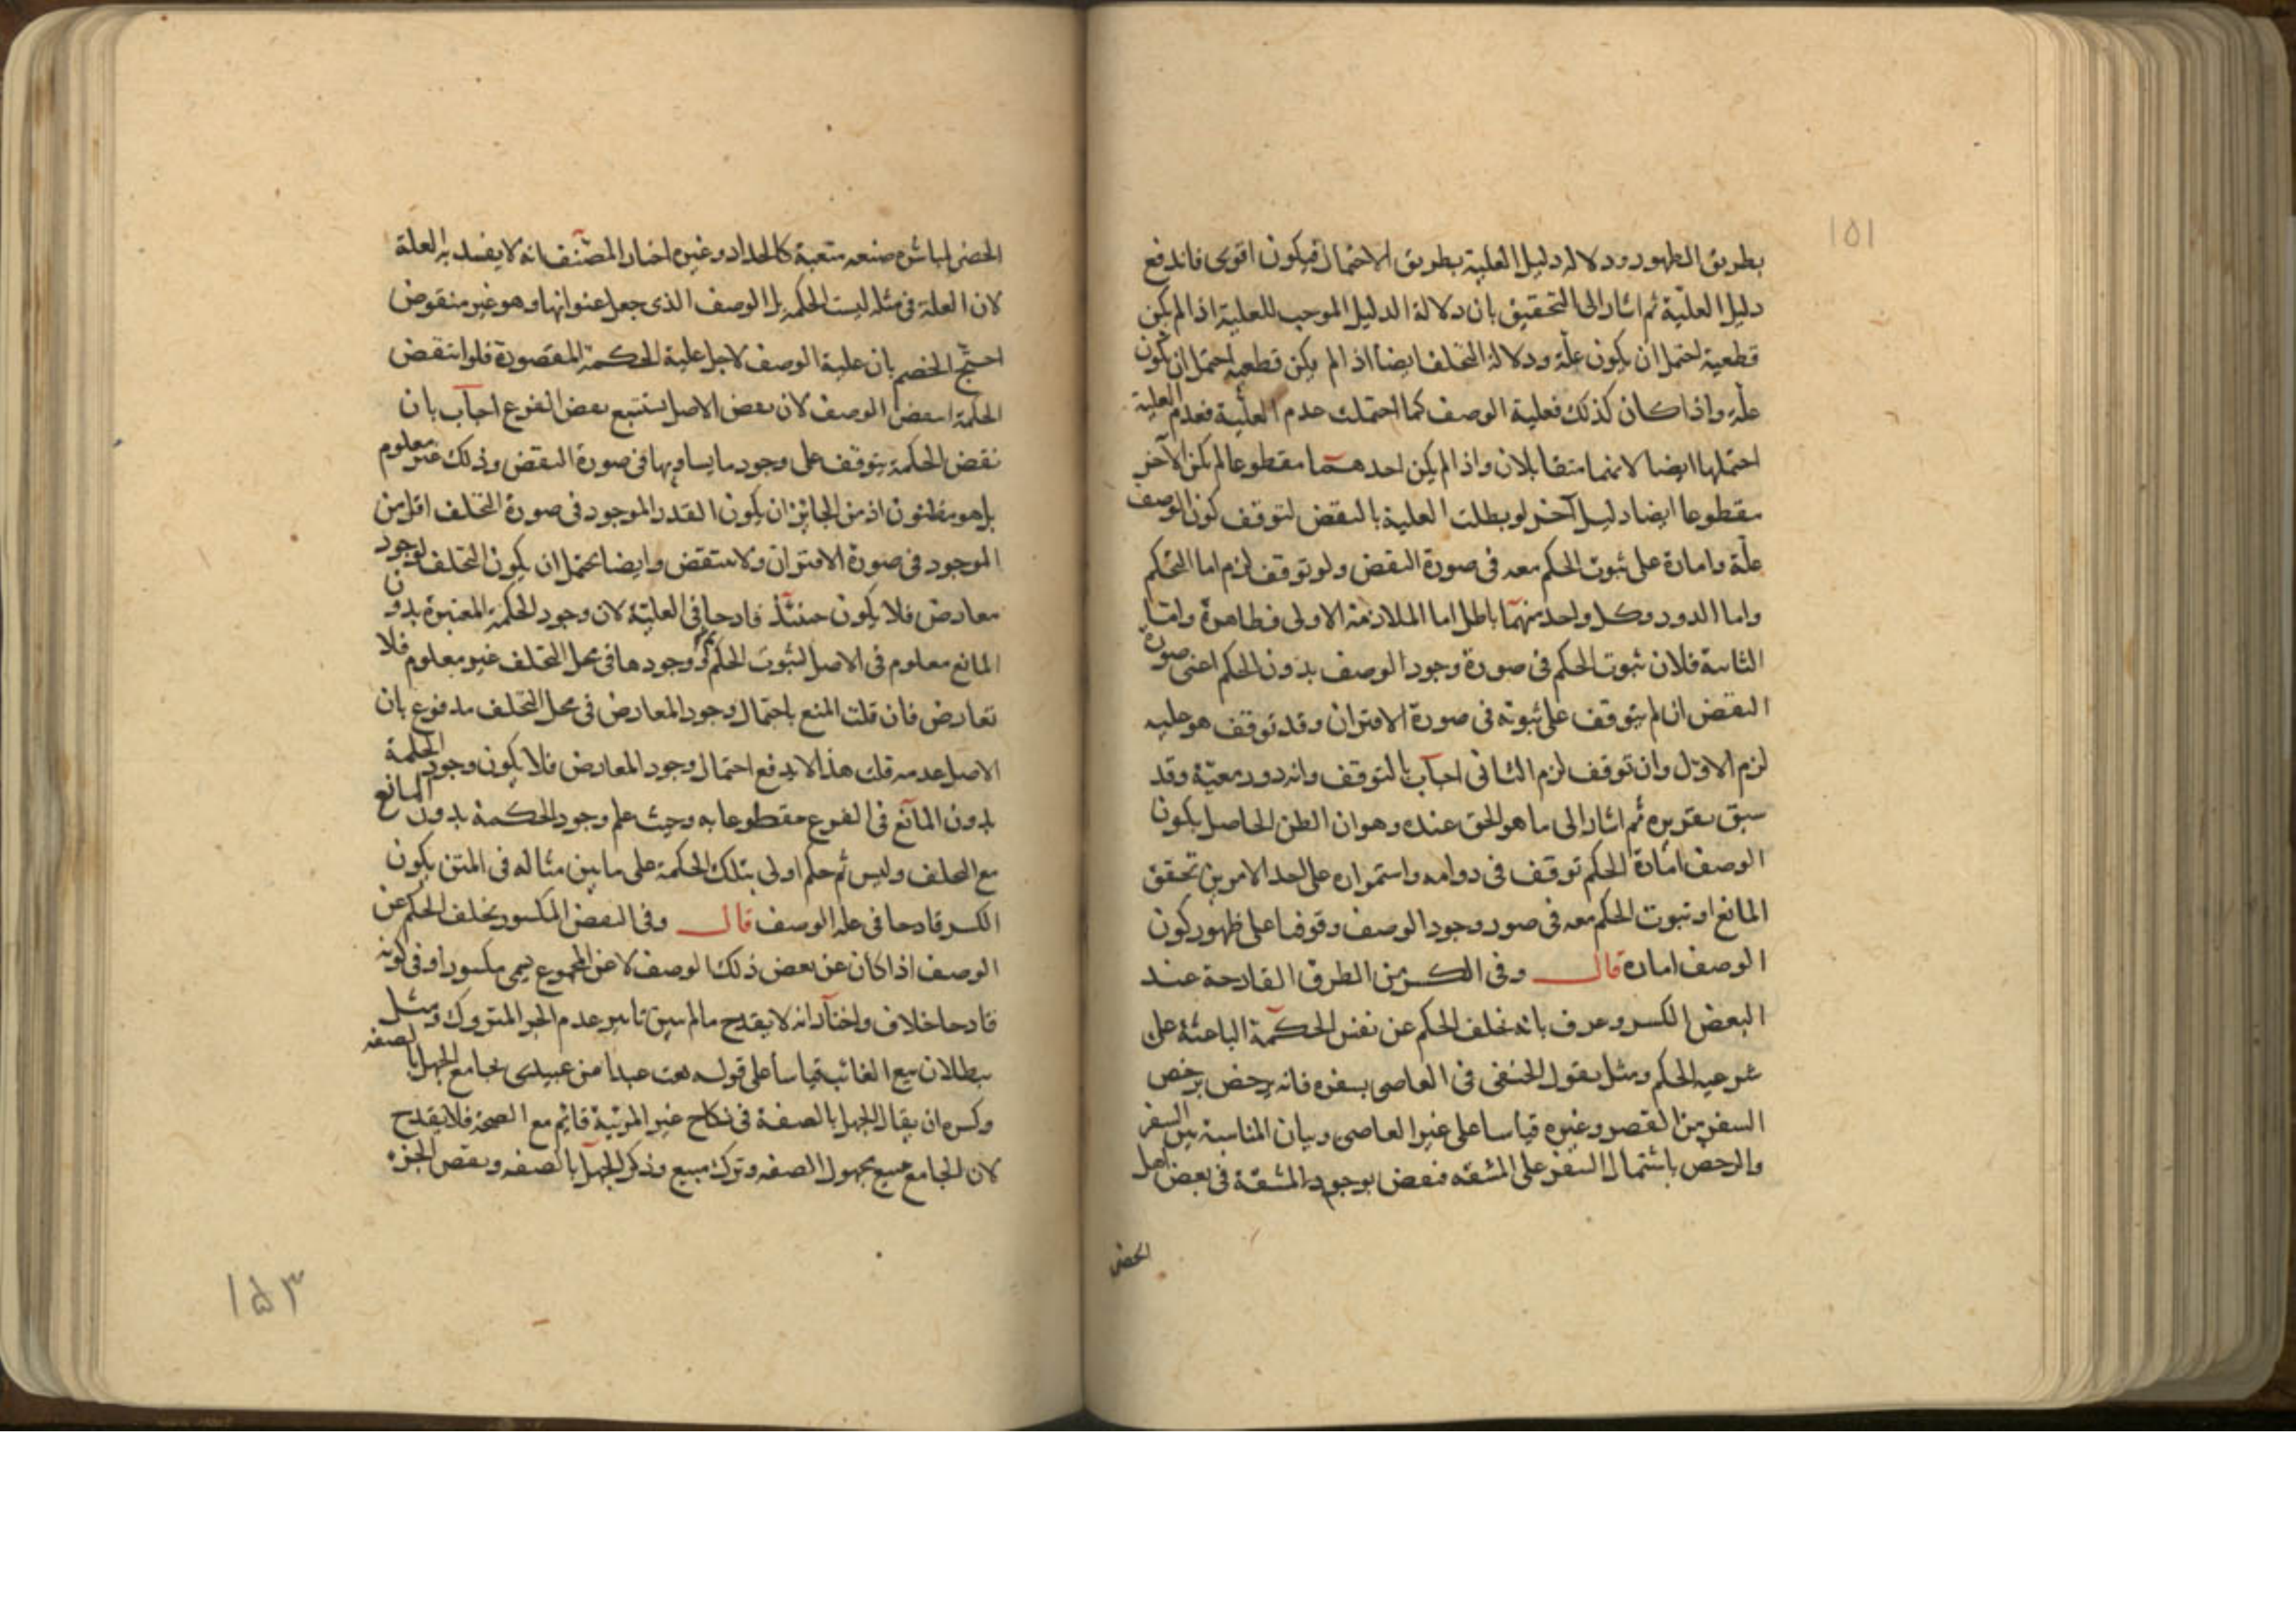 ١٥١
بطريق الظهور ودلاله دليل العلية بطريق الاحتمال فيكون اقوى فاندفع
دليل العلّية ثم اشار الى التحقيق بان دلالة الدليل الموجب للعلية اذا لم يكن
قطعية احتمل ان يكون علّة ودلالة التخلف ايضا اذا لم يكن قطعيه احتمل ان يكون
علّة واذا كان كذلك فعلية الوصف كما احتملت عدم العلّية فعدم العلية
احتملها ايضا لانهما متقابلان واذا لم يكن احدهما مقطوعا لم يكن الآخر
مقطوعا ايضا دليل آخر لو بطلت العلية بالنقض لتوقف كون الوصف
علّة وامارة على ثبوت الحكم معه فى صورة النقض ولو توقف لزم اما التحكم
واما الدور وكل واحد منهما باطل اما الملازمة الاولى فظاهرة وامّا
الثانية فلان ثبوت الحكم فى صورة وجود الوصف بدون الحكم اعنى صورة
النقض ان لم يتوقف على ثبوته فى صورة الاقتران وقد توقف هو عليه
لزم الاوّل وان توقف لزم الثانى اجاب بالتوقف وانه دور معيّة وقد
سبق تقريره ثم اشار الى ما هو الحق عنده وهو ان الظن الحاصل بكون
الوصف امارة الحكم توقف فى دوامه واستمراره على احد الامرين تحقق
المانع او ثبوت الحكم معه فى صور وجود الوصف وقوفا على ظهور كون
الوصف اماره قال وفى الكسر من الطرق القادحة عند
البعض الكسر وعرف بانه تخلف الحكم عن نفس الحكمة الباعثة على
شرعيه الحكم ومثل بقول الحنفى فى العاصى بسفره فانه يرخص برخص
السفر من القصر وغيره قياسا على غير العاصى وبيان المناسبة بين السفر
والرخص باشتمال السفر على المشقه فنقض بوجود المشقة فى بعض اهل
الحضر
الحضر لمباشره صنعه متعبة كالحداد وغيره اختار المصنّف انه لا يفسد به العلة
لان العلة فى مثله ليست الحكمه بل الوصف الذى جعل عنوانها وهو غير منقوض
احتجّ الخصم بان علية الوصف لاجل علية الحكمة المقصورة فلو انتقض
الحكمة انتقض الوصف لان نقض الاصل يستتبع نقض الفرع اجاب بان
نقض الحكمة يتوقف على وجود ما يساويها فى صورة النقض وذلك غير معلوم
بل هو مظنون اذ من الجايز ان يكون القدر الموجود فى صورة التخلف اقل من
الموجود فى صورة الاقتران ولا ينتقض وايضا يحتمل ان يكون التخلف لوجود
معارض فلا يكون حينئذ قادحا فى العليّة لان وجود الحكمة المعتبرة بدون
المانع معلوم فى الاصل لثبوت الحكم ووجودها فى محل التخلف غير معلوم فلا
تعارض فان قلت المنع باحتمال وجود المعارض فى محل التخلف مدفوع بان
الاصل عدمه قلت هذا لا يدفع احتمال وجود المعارض فلا يكون وجود الحكمة
بدون المانع فى الفرع مقطوعا به وحيث علم وجود الحكمة بدون المانع
مع التخلف وليس ثم حكم اولى بتلك الحكمة على ما بين مثاله فى المتن يكون
الكسر قادحا فى عله الوصف قال وفى النقض المكسور تخلف الحكم عن
الوصف اذا كان عن بعض ذلك الوصف لا عن المجموع يسمى مكسورا وفى كونه
قادحا خلاف واختار انه لا يقدح ما لم يبين تاثير عدم الجزء المتروك ومثل
ببطلان بيع الغائب قياسا على قوله بعت عبدا من عبيدى بجامع الجهل بالصفه
وكسره ان يقال الجهل بالصفة فى نكاح غير المرئية قايم مع الصحة فلا يقدح
لان الجامع مبيع مجهول الصفه وترك مبيع وذكر الجهل بالصفه ونقض الجزء
١٥٣